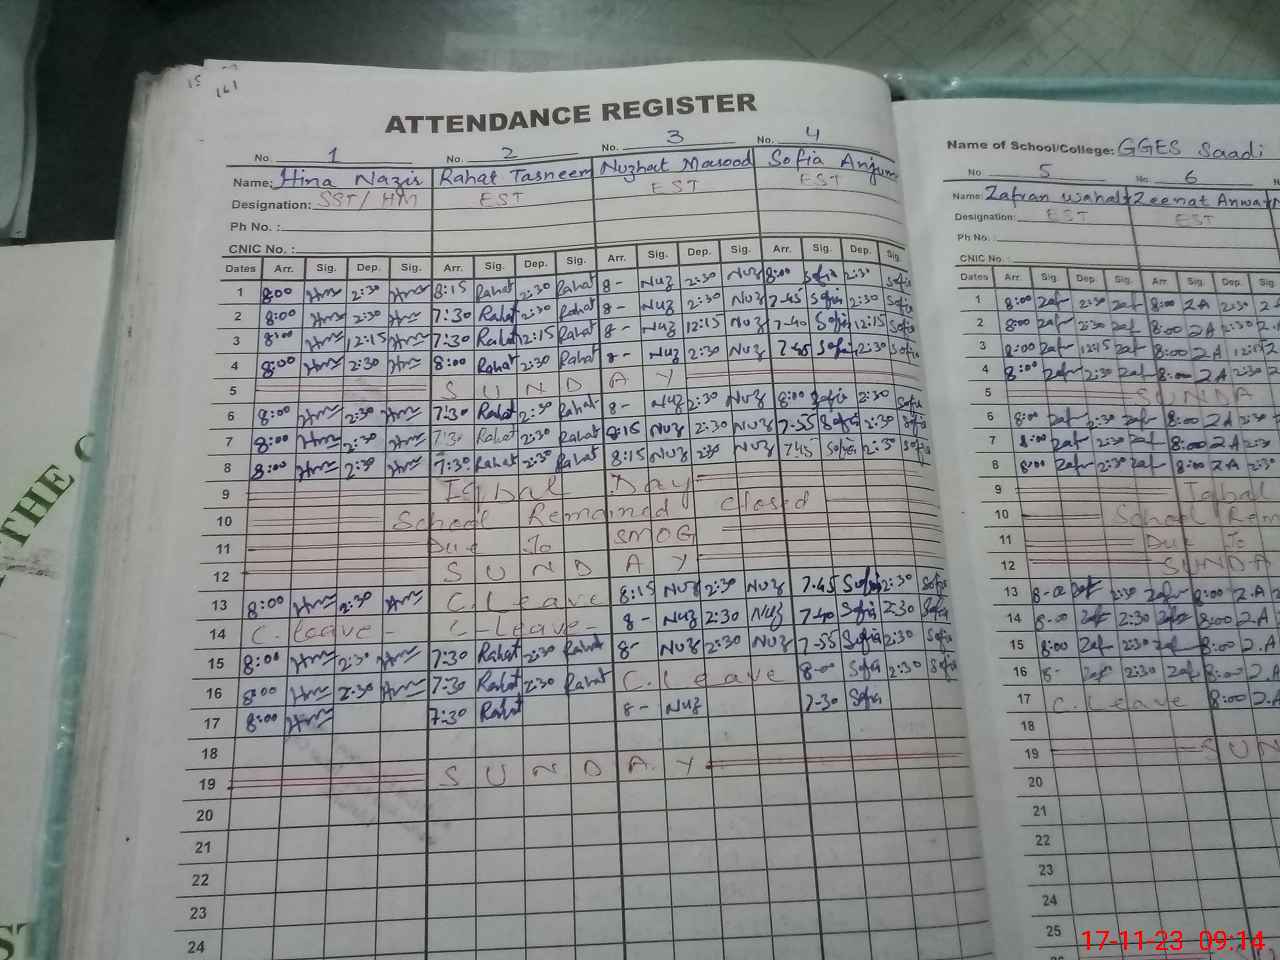 161
ATTENDANCE REGISTER
No. 1 No. 2 No. 3 No. 4
Name: Hina Nazir Rahat Tasneem Nuzhat Masood Sofia Anjum
Designation: SST/HM EST EST EST
Ph No. :
CNIC No. :
Dates Arr. Sig. Dep. Sig. Arr. Sig. Dep. Sig. Arr. Sig. Dep. Sig. Arr. Sig. Dep. Sig.
1 8:00 2:30 8:15 Rahat 2:30 Rahat 8- Nuz 2:30 Nuz 8:00 Sofia 2:30 Sofia
2 8:00 2:30 7:30 Rahat 2:30 Rahat 8- Nuz 2:30 Nuz 7-45 Sofia 2:30 Sofia
3 8:00 12:15 7:30 Rahat 12:15 Rahat 8- Nuz 12:15 Nuz 7-40 Sofia 12:15 Sofia
4 8:00 2:30 8:00 Rahat 2:30 Rahat 8- Nuz 2:30 Nuz 7-45 Sofia 2:30 Sofia
5 SUNDAY
6 8:00 2:30 7:30 Rahat 2:30 Rahat 8- Nuz 2:30 Nuz 8:00 Sofia 2:30 Sofia
7 8:00 2:30 7:30 Rahat 2:30 Rahat 8:15 Nuz 2:30 Nuz 7-55 Sofia 2:30 Sofia
8 8:00 2:30 7:30 Rahat 2:30 Rahat 8:15 Nuz 2:30 Nuz 7-45 Sofia 2:30 Sofia
9 Iqbal Day
10 School Remained Closed
11 Due To SMOG
12 SUNDAY
13 8:00 2:30 C.Leave 8:15 Nuz 2:30 Nuz 7-45 Sofia 2:30 Sofia
14 C.leave- C-Leave- 8- Nuz 2:30 Nuz 7-40 Sofia 2:30 Sofia
15 8:00 2:30 7:30 Rahat 2:30 Rahat 8- Nuz 2:30 Nuz 7-55 Sofia 2:30 Sofia
16 8:00 2:30 7:30 Rahat 2:30 Rahat C.Leave 8-00 Sofia 2:30 Sofia
17 8:00 7:30 Rahat 8- Nuz 7-30 Sofia
18
19 SUNDAY
20
21
22
23
24
Name of School/College: GGES Saadi
No 5 No 6
Name: Zafran Wahab Zeenat Anwar
Designation: EST EST
Ph No. :
CNIC No. :
Dates Arr. Sig. Dep Sig. Arr Sig. Dep. Sig.
1 8:00 Zaf 2:30 Zaf 8:00 ZA 2:30
2 8:00 Zaf 2:30 Zaf 8:00 ZA 2:30
3 8:00 Zaf 12:15 Zaf 8:00 ZA 12:15
4 8:00 Zaf 2:30 Zaf 8:00 ZA 2:30
5 SUNDA
6 8:00 Zaf 2:30 Zaf 8:00 ZA 2:30
7 8:00 Zaf 2:30 Zaf 8:00 ZA 2:30
8 8:00 Zaf 2:30 Zaf 8:00 ZA 2:30
9 Iqbal
10 School Rem
11 Due To
12 SUNDA
13 8-00 Zaf 2:30 Zaf 8:00 Z.A
14 8-00 Zaf 2:30 Zaf 8:00 Z.A
15 8:00 Zaf 2:30 Zaf 8:00 Z.A
16 8- Zaf 2:30 Zaf 8:00 Z.A
17 C.Leave 8:00 Z.A
18
19 SUN
20
21
22
23
24
25
THE
17-11-23 09:14